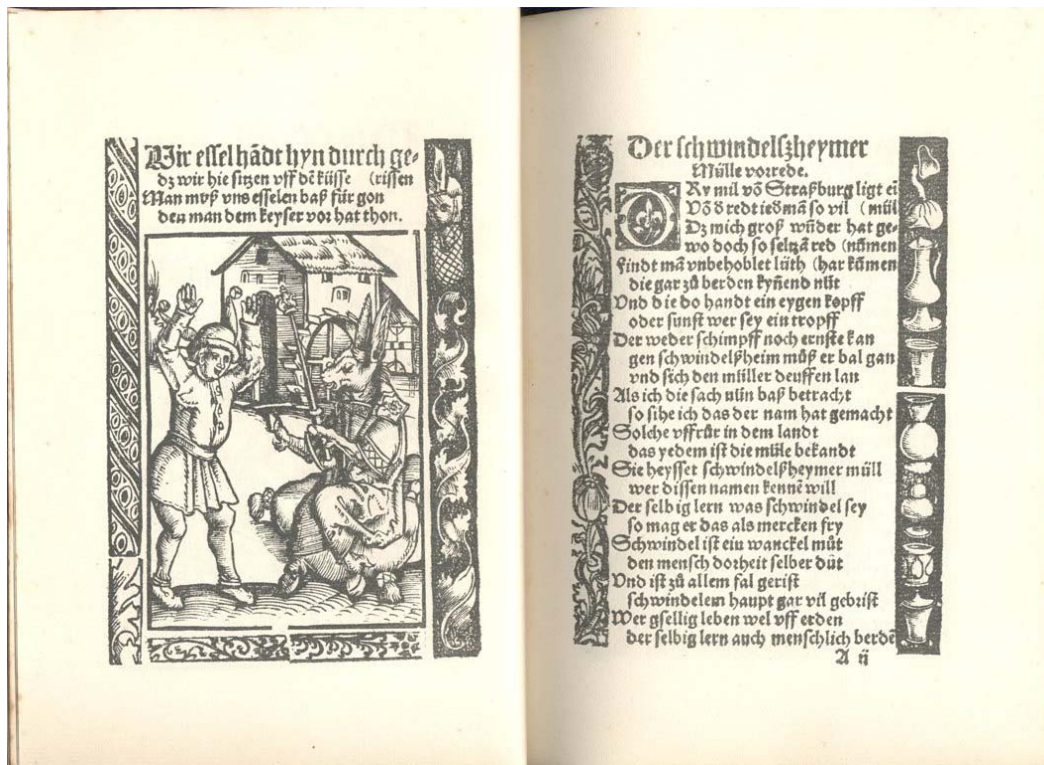 Wir essel hādt hyn durch ge-
dz wir hie sitzen vff dē küsse (rissen
Man muß vns esselen baß für gon
den man dem keyser vor hat thon.
Der schwindelßheymer
Mülle vorrede.
DRy mil vō Straßburg ligt ei
Vō d̄ redt ied̄mā so vil (mül
Dz mich groß wūder hat ge-
wo doch so seltzā red (nūmen
Findt mā vnbehoblet lüth (har kūmen
die gar zů berden kyñend nüt
Vnd die do handt ein eygen kopff
oder sunst wer sey ein tropff
Der weder schimpff noch ernste kan
gen schwindelßheim můß er bal gan
vnd sich den müller deuffen lan
Als ich die sach nůn baß betracht
so sihe ich das der nam hat gemacht
Solche vffrůr in dem landt
das yedem ist die müle bekandt
Sie heysset schwindelßheymer müll
wer dissen namen kennē will
Der selbig lern was schwindel sey
so mag er das als mercken fry
Schwindel ist ein wanckel můt
den mensch dorheit selber důt
Vnd ist zů allem fal gerist
schwindelem haupt gar vil gebrist
Wer gsellig leben wel vff erden
der selbig lern auch menschlich berdē
A ij